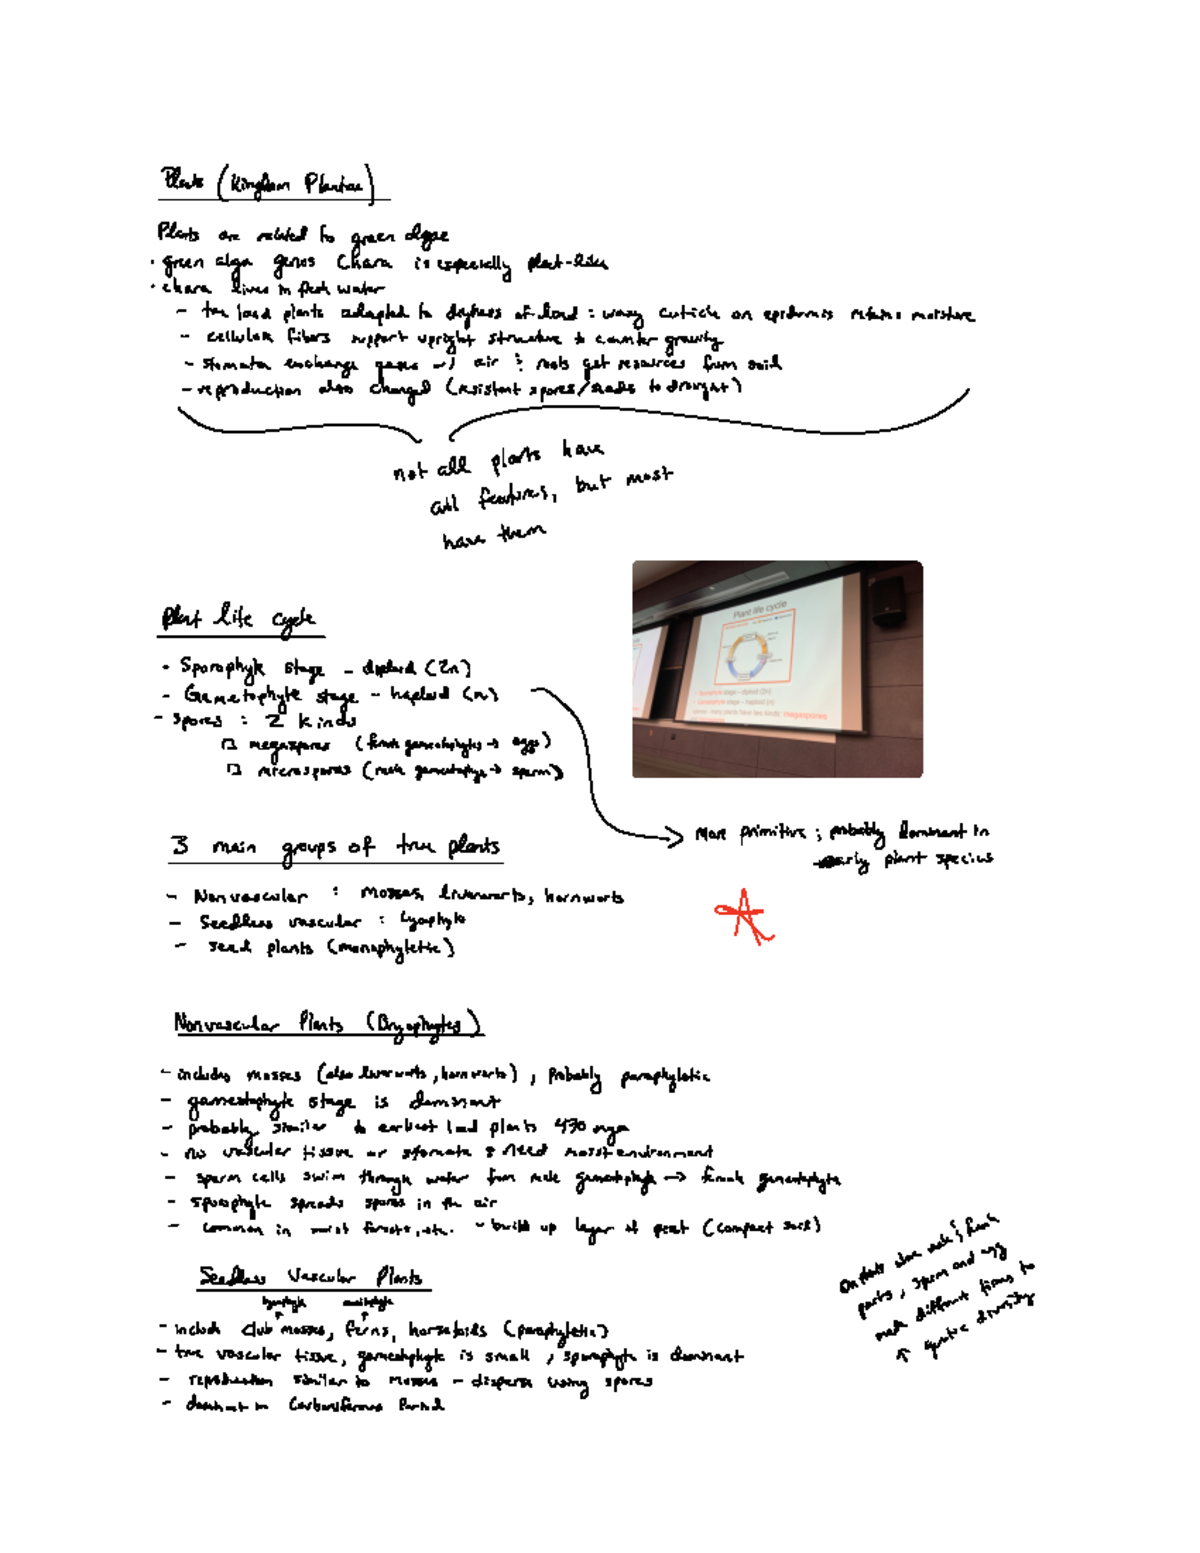 Plants (Kingdom Plantae)
Plants are related to green algae
· green alga genus Chara is especially plant-like
· chara lives in fresh water
- true land plants adapted to dryness of land : waxy cuticle on epidermis retains moisture
- cellulose fibers support upright structure to counter gravity
- stomata exchange gases w/ air & roots get resources from soil
- reproduction also changed (resistant spores/seeds to drought)
not all plants have
all features, but most
have them
Plant life cycle
- Sporophyte stage - diploid (2n)
- Gametophyte stage - haploid (n)
- spores : 2 kinds
megaspores (female gametophytes → eggs)
microspores (male gametophyte → sperm)
Plant life cycle
stage - diploid (2n)
stage - haploid (n)
megaspores
More primitive ; probably dominant in
early plant species
3 main groups of true plants
- Nonvascular : mosses, liverworts, hornworts
- Seedless vascular :
- seed plants (monophyletic)
Nonvascular Plants (Bryophytes)
- includes mosses (also liverworts, hornworts), probably paraphyletic
- gametophyte stage is dominant
- probably similar to earliest land plants 470 mya
- no vascular tissue or stomata & need moist environment
- sperm cells swim through water from male gametophyte → female gametophyte
- sporophyte spreads spores in the air
- common in moist forests, etc. - build up layer of peat (compact soil)
On plants
parts, sperm and egg
made different times to
↑ genetic diversity
Seedless Vascular Plants
lycophyte
- include club mosses, ferns, horsetails (paraphyletic)
- true vascular tissue, gametophyte is small, sporophyte is dominant
- reproduction similar to mosses - disperse using spores
- dominant in Carboniferous Period